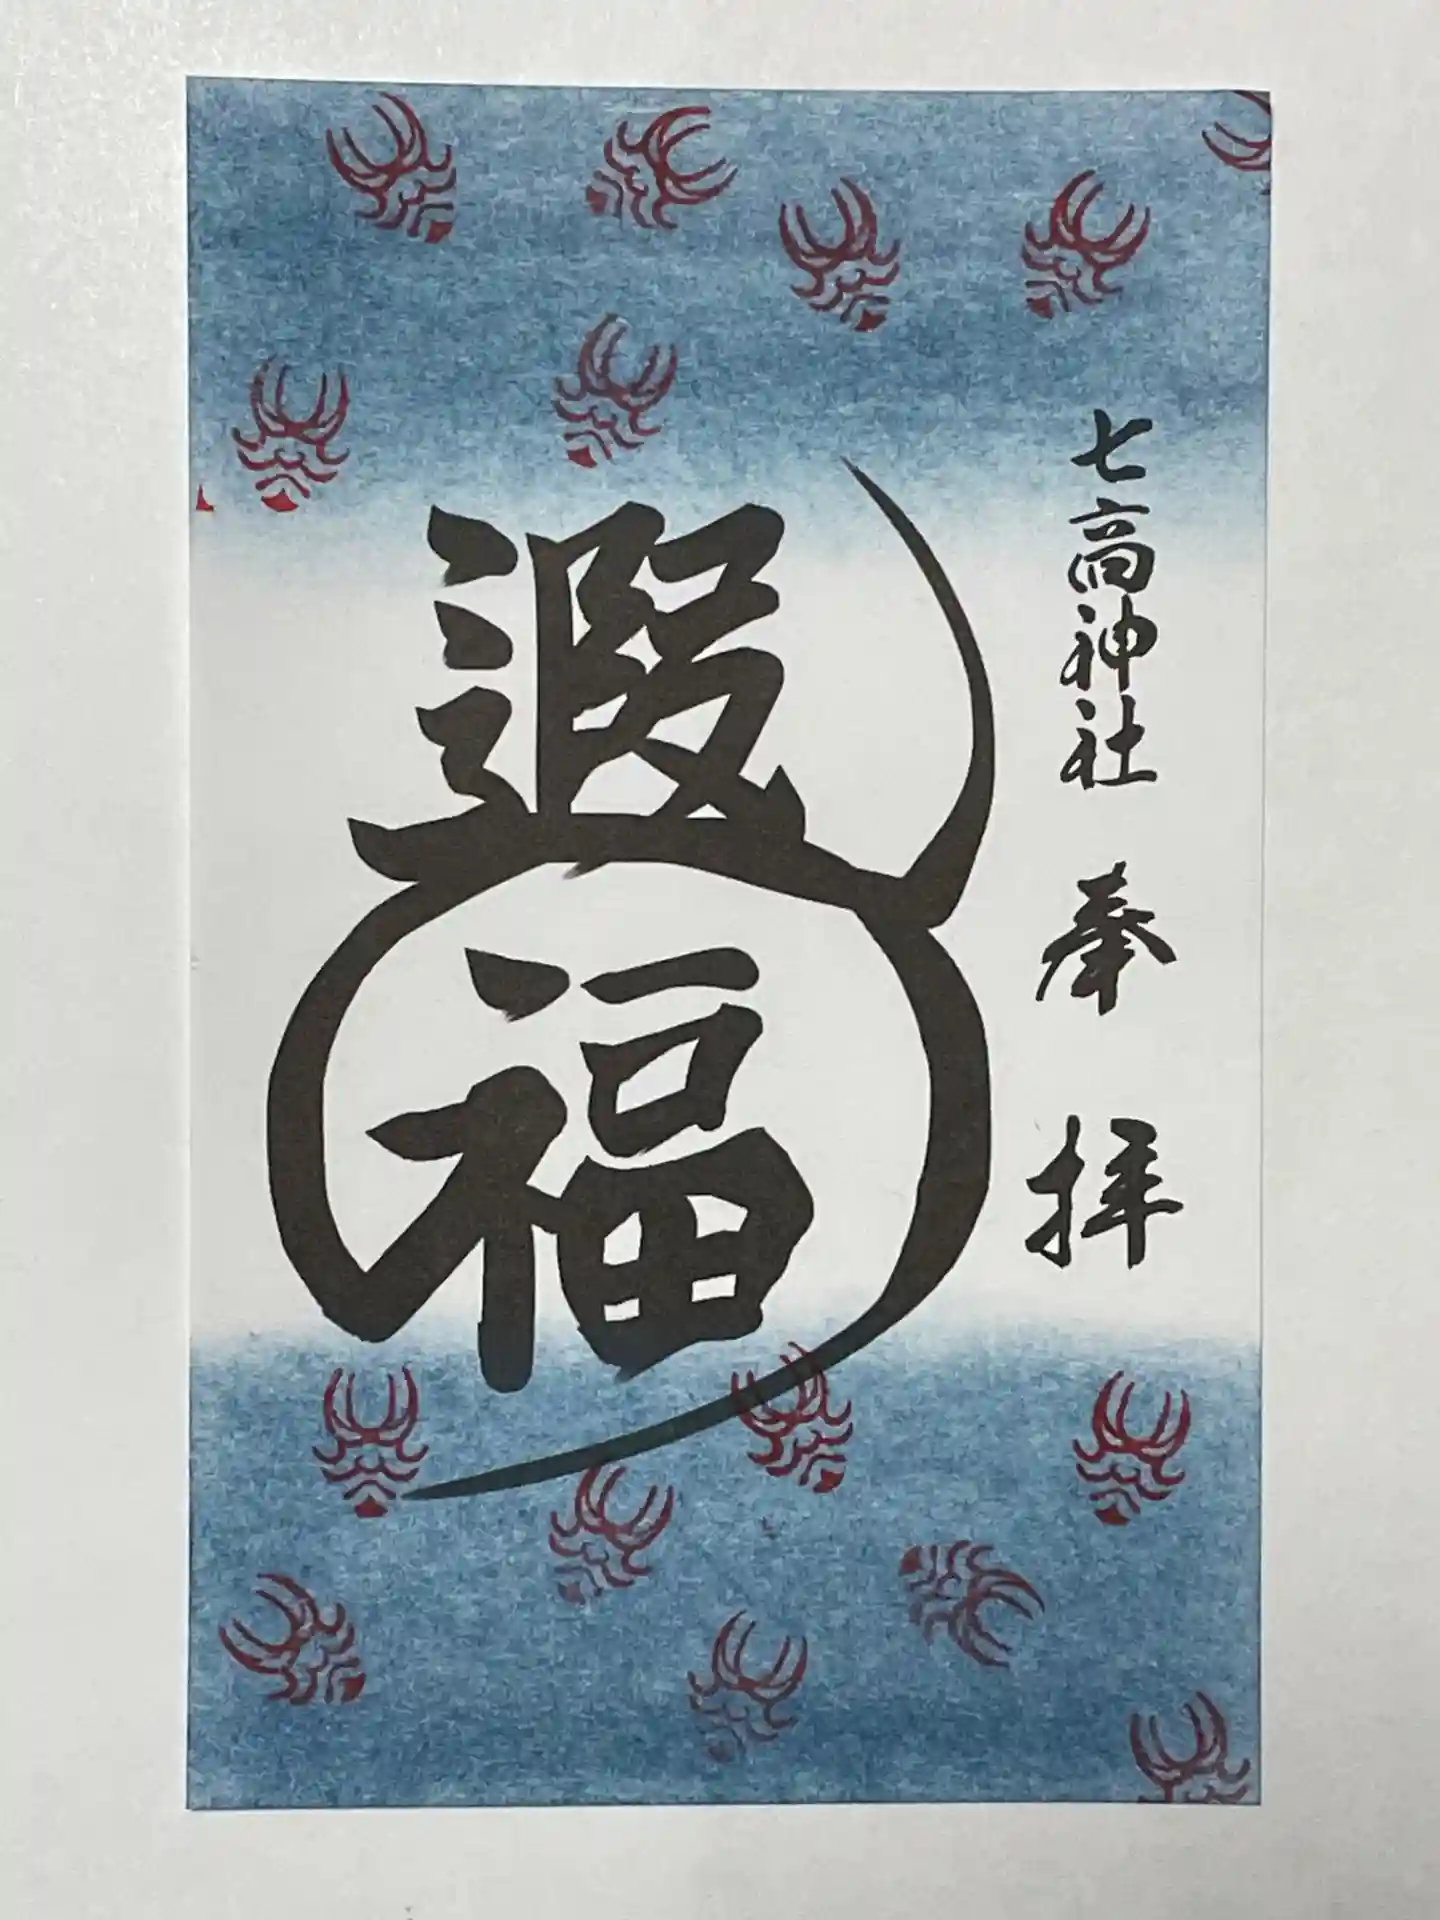 七高神社 奉 拝
遐福